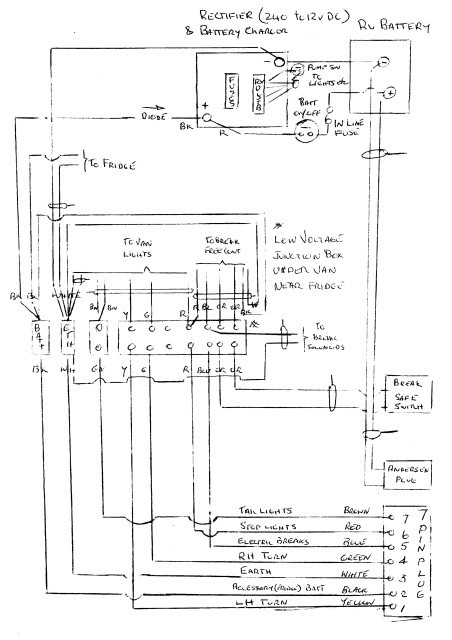 RECTIFIER (240 to 12v DC)
& BATTERY CHARGOR
RV BATTERY
PUMP SW
TO
LIGHTS etc
FUSE
BATT
ON/OFF
IN LINE
FUSE
DIODE
BK
R
TO FRIDGE
TO VAN
LIGHTS
TO BREAK
* LOW VOLTAGE
JUNCTION BOX
UNDER VAN
NEAR FRIDGE
BK
BK
WHITE
BN
BN
Y
G
R
BK
BLU
OR
BR
BK
W
BAT
+
TO
BRAKE
SOLENOIDS
BK
WH
Y
G
R
BLU
OR
OR
BREAK
SAFE
SWITCH
ANDERSEN
PLUG
TAIL LIGHTS BROWN 7
STOP LIGHTS RED 6
ELECTRIC BREAKS BLUE 5
RH TURN GREEN 4
EARTH WHITE 3
ACCESSORY (FRIDGE) BATT BLACK 2
LH TURN YELLOW 1
7 PIN PLUG